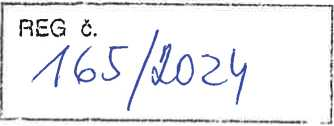 REG č.
165/2024